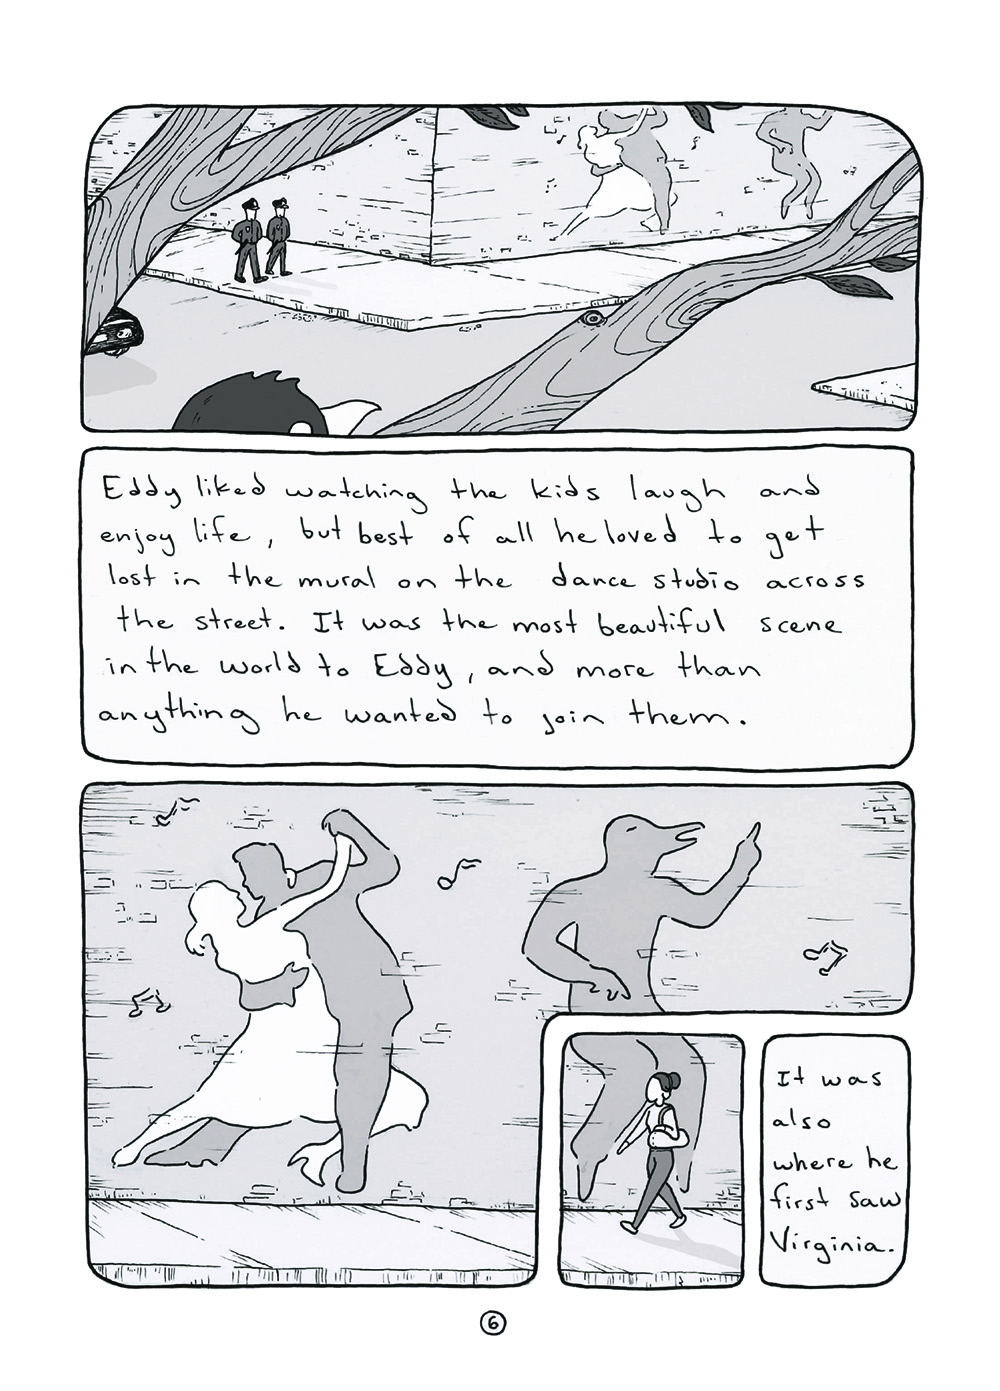 Eddy liked watching the kids laugh and
enjoy life, but best of all he loved to get
lost in the mural on the dance studio across
the street. It was the most beautiful scene
in the world to Eddy, and more than
anything he wanted to join them.
It was
also
where he
first saw
Virginia.
6